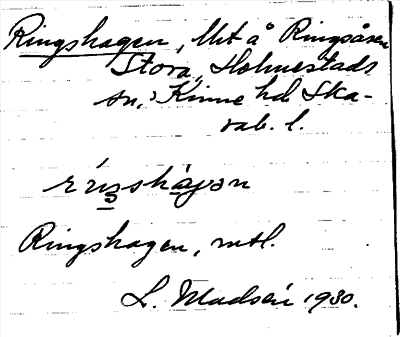 Ringshagen, Ut å Ringsåsen
Stora, Holmestads
sn, Kinne hd Ska-
rab. l.
Ringshagen, mtl.
L. Madsén 1930.